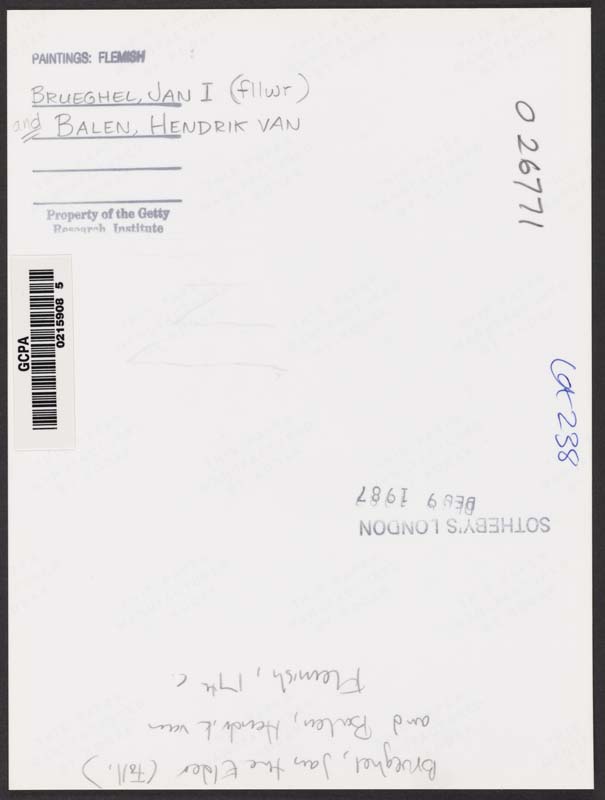 PAINTINGS: FLEMISH
BRUEGHEL, JAN I (fllwr)
and BALEN, HENDRIK VAN
Property of the Getty
Research Institute
0 26771
GCPA
0215908 5
Lot 238
SOTHEBY'S LONDON
9 1987
Brueghel, Jan the Elder (Foll.)
and Balen, Hendrik van
Flemish, 17th c.